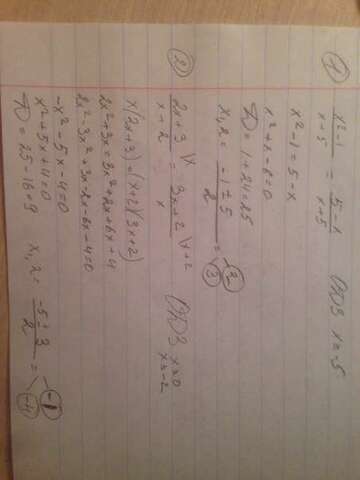 1)
x²-1/x+5 = 5-x/x+5 ОДЗ x≠5
x²-1=5-x
x²+x-6=0
D=1+24=25
x1,2 = -1±5/2 = 2 -3
2)
2x+3/x+2 \x = 3x+2/x \x+2 ОДЗ x≠0 x≠-2
x(2x+3)=(x+2)(3x+2)
2x²+3x=3x²+2x+6x+4
2x²-3x²+3x-2x-6x-4=0
-x²-5x-4=0
x²+5x+4=0
D=25-16=9 x1,2 = -5±3/2 = -1 -4